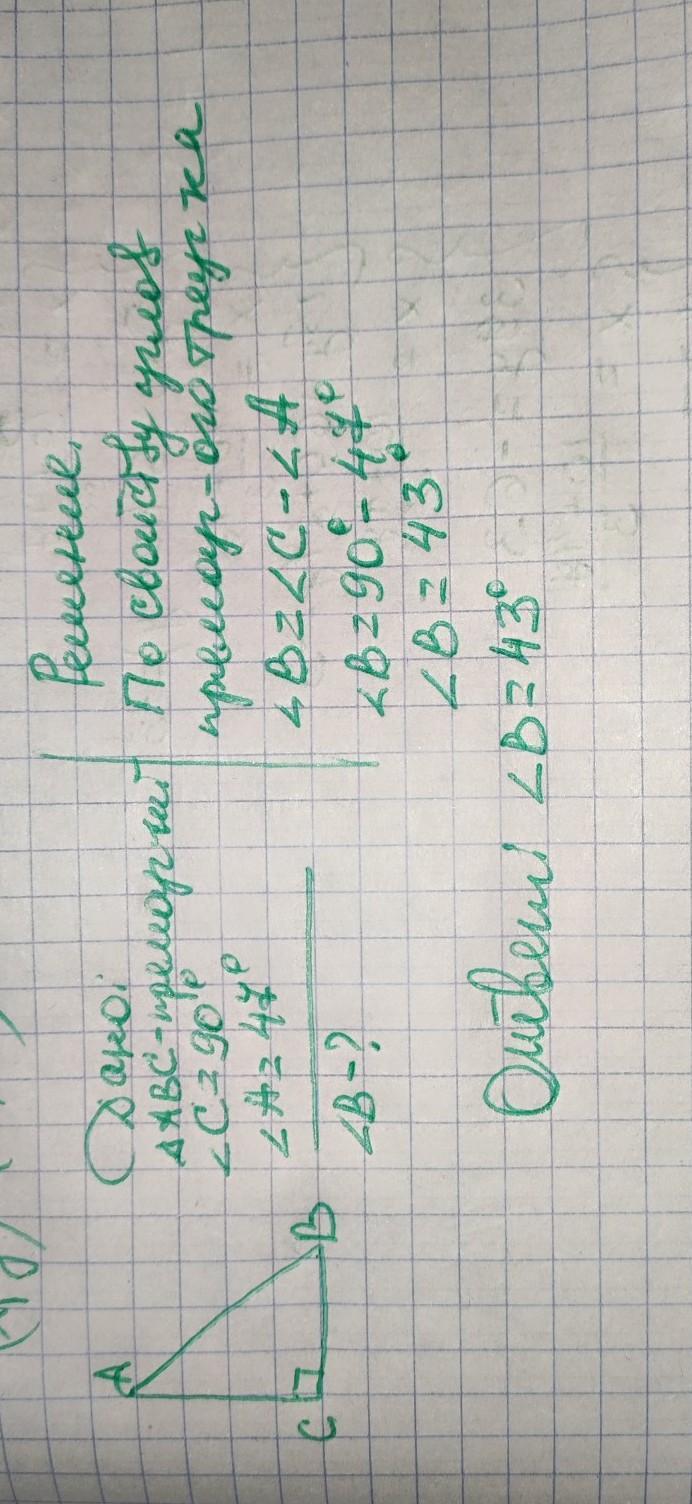 A
C
B
Дано:
∆ABC-прямоуг-ный
∠C=90°
∠A=47°
∠B-?
Решение.
По свойству углов
прямоуг-ого треуг-ка
∠B=∠C-∠A
∠B=90°-47°
∠B=43°
Ответ: ∠B=43°